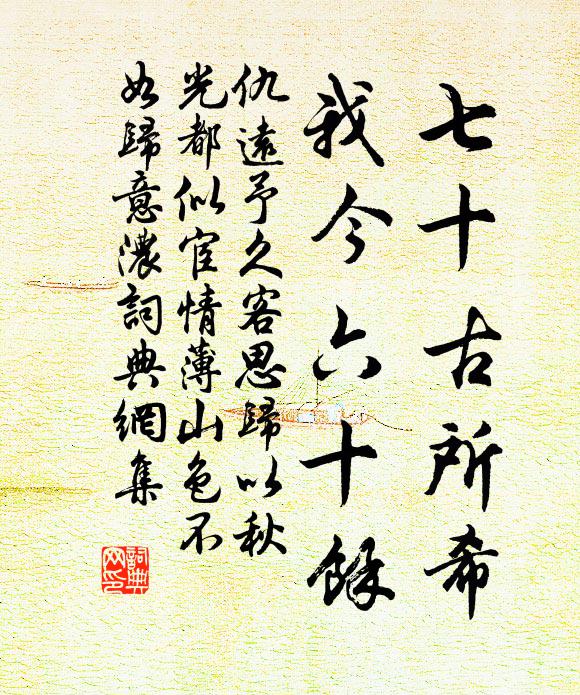 七十古所希
我今六十餘
仇遠予久客思歸以秋
光都似宦情薄山色不
如歸意濃詞典網集
詞典
网印